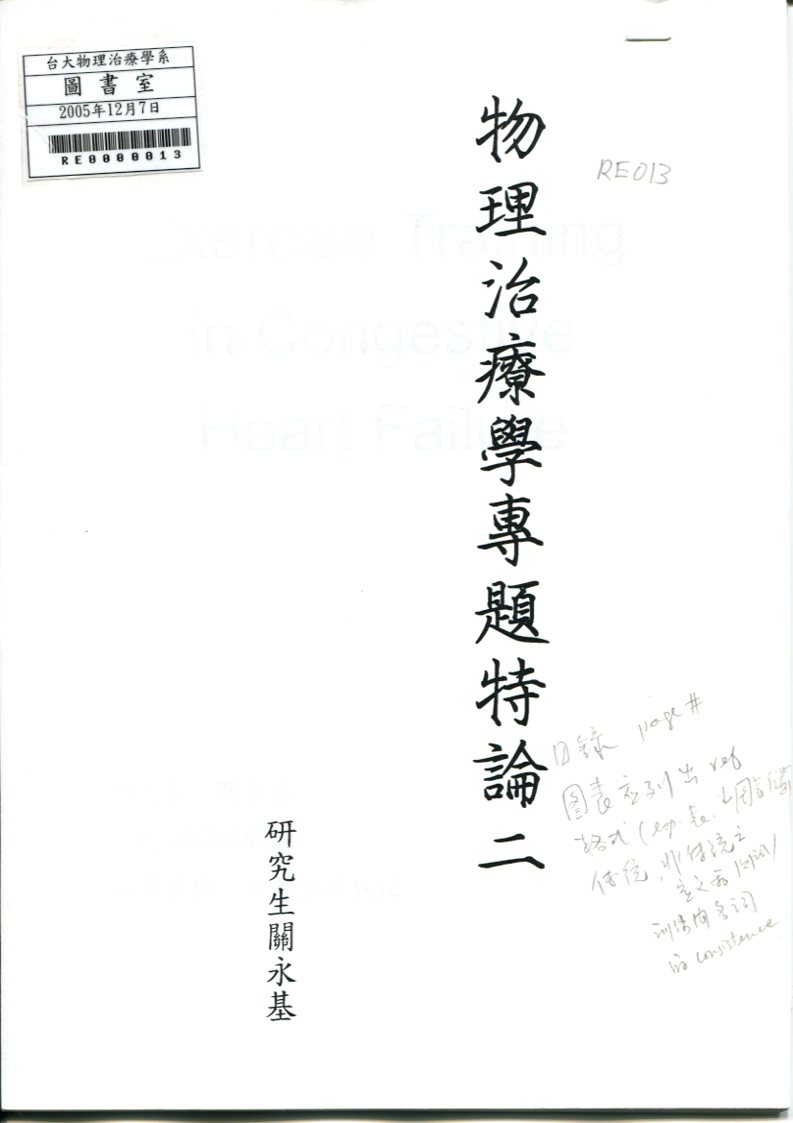 台大物理治療學系
圖書室
2005年12月7日
RE0000013
RE013
物理治療學專題特論二
研究生關永基
Exercise Training
in Congestive
Heart Failure
目錄 page #
圖表應列出 ref
格式
傳統,非傳統之
定義
名詞
的 consistence